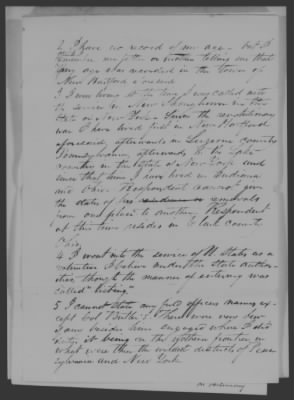 2 I have no record of my age - but I
remember my father or mother telling me that
my age was recorded in the town of
New Hartford aforesaid
3 I was living at the time I was called into
the service in New
State of New York - Since the revolutionary
war I have lived first in New Hartford
aforesaid, afterwards in Luzerne County
Pennsylvania, afterwards in
in the State of New York and
since that time I have lived in Indiana
and Ohio. Respondent cannot give
the dates of his removals
from one place to another. Respondent
at this time resides in Clark County
Ohio
4 I went into the service of U States as a
volunteer I believe under the State author-
ities, though the manner of entering was
called "listing"
5 I cannot state any field officers names ex-
cept Col Butler's. There were very few
I saw besides him engaged where I did
duty, it being on the northern frontier in
what were then the wildest districts of Penn
sylvania and New York